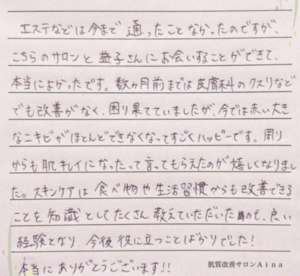 エステなどは今まで通ったことなかったのですが、
こちらのサロンと益子さんにお会いすることができて、
本当によかったです。数ヵ月前までは皮膚科のクスリなど
でも改善がなく、困り果てていましたが、今では赤い大き
なニキビがほとんどできなくなってすごくハッピーです。周り
からも肌キレイになったって言ってもらえたのが嬉しくなりまし
た。スキンケアは食べ物や生活習慣からも改善できる
ことを知識としてたくさん教えていただいたのも、良い
経験となり、今後役に立つことばかりでした!
本当にありがとうございます!!
肌質改善サロンAina